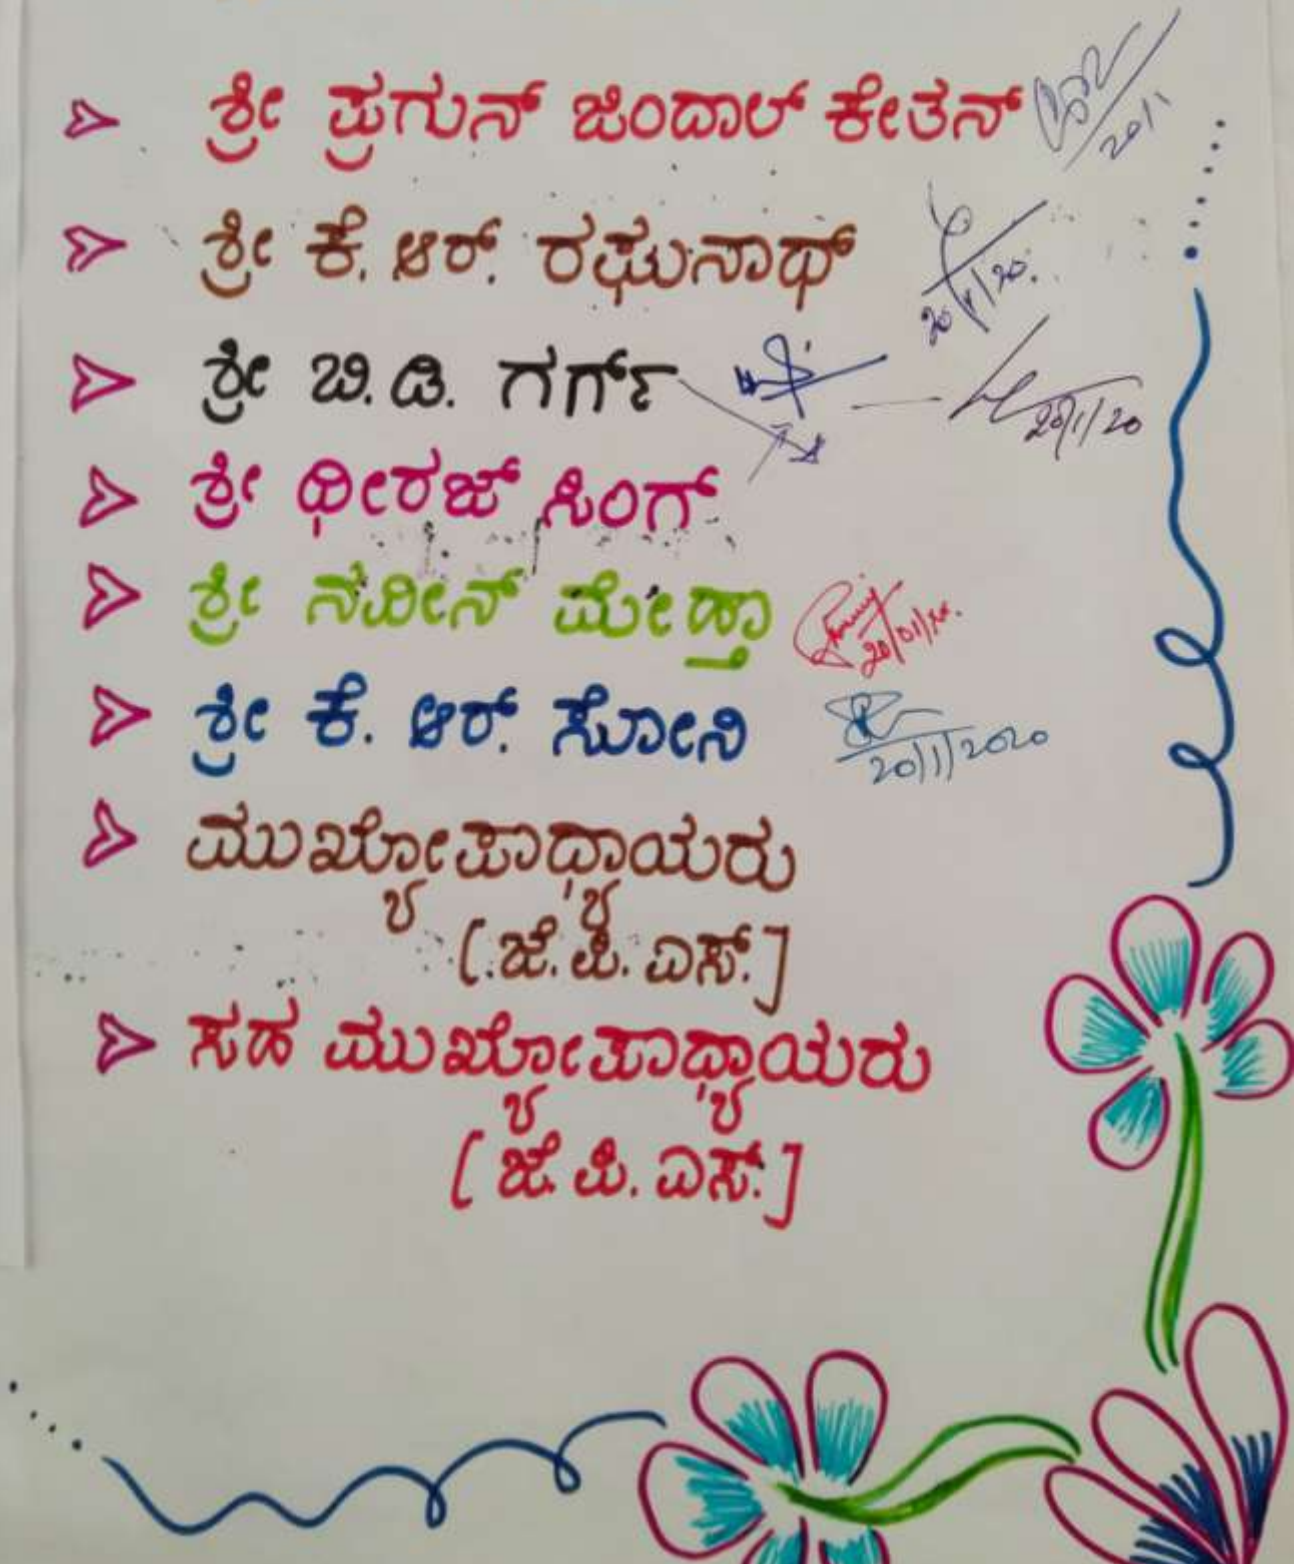 ಶ್ರೀ ಪ್ರಗುನ್ ಜಿಂದಾಲ್ ಕೇತನ್ 20/1
ಶ್ರೀ ಕೆ. ಆರ್. ರಘುನಾಥ್ 20/1/20.
ಶ್ರೀ ಬಿ. ಡಿ. ಗರ್ಗ್ 20/1/20
ಶ್ರೀ ಧೀರಜ್ ಸಿಂಗ್
ಶ್ರೀ ನವೀನ್ ಮೇಹ್ತಾ 20/01/20.
ಶ್ರೀ ಕೆ. ಆರ್. ಸೋನಿ 20/1/2020
ಮುಖ್ಯೋಪಾಧ್ಯಾಯರು
[ಜೆ. ಪಿ. ಎಸ್.]
ಸಹ ಮುಖ್ಯೋಪಾಧ್ಯಾಯರು
[ಜೆ. ಪಿ. ಎಸ್.]